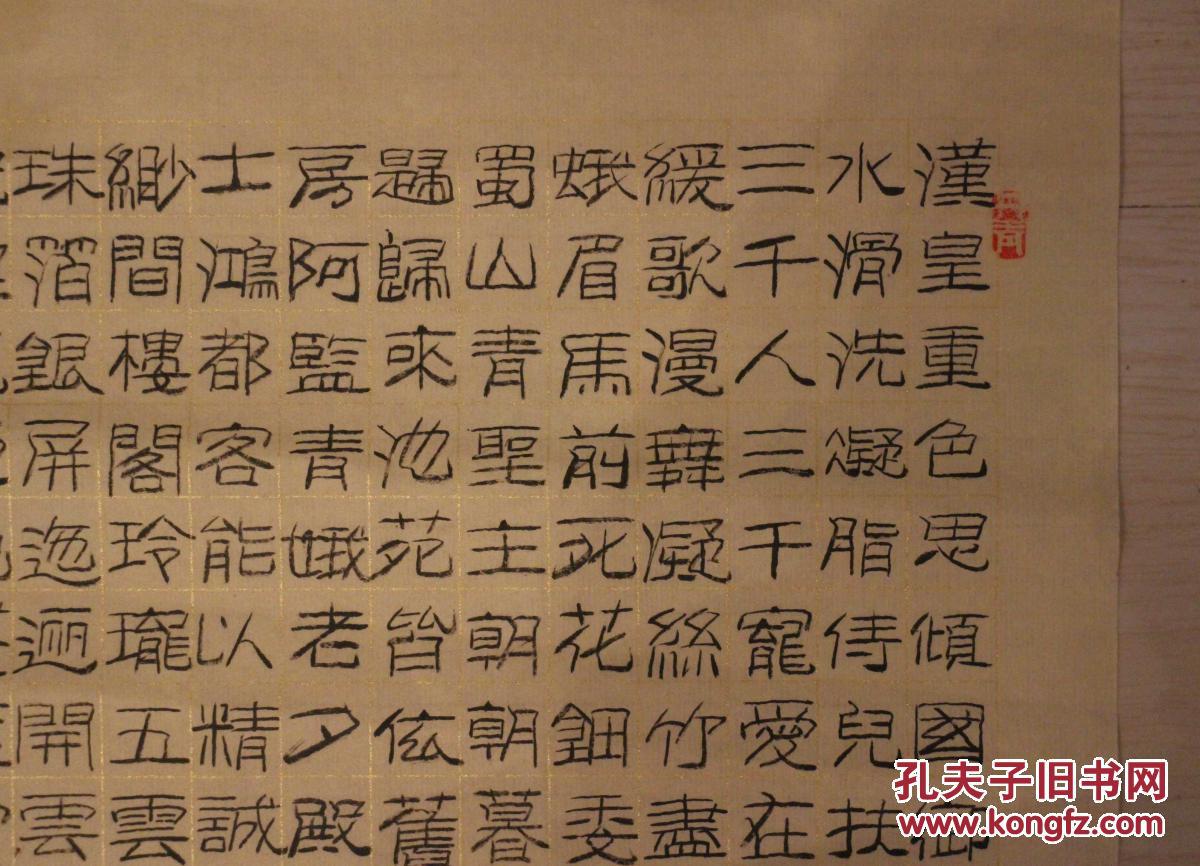 漢皇重色思傾國御
水滑洗凝脂侍兒扶
三千人三千寵愛在
緩歌漫舞凝絲竹盡
蛾眉馬前死花鈿委
蜀山青聖主朝朝暮
歸歸來池苑皆依舊
房阿監青娥老夕殿
士鴻都客能以精誠
緲間樓閣玲瓏五雲
珠箔銀屏迤邐開雲
孔夫子旧书网
www.kongfz.com